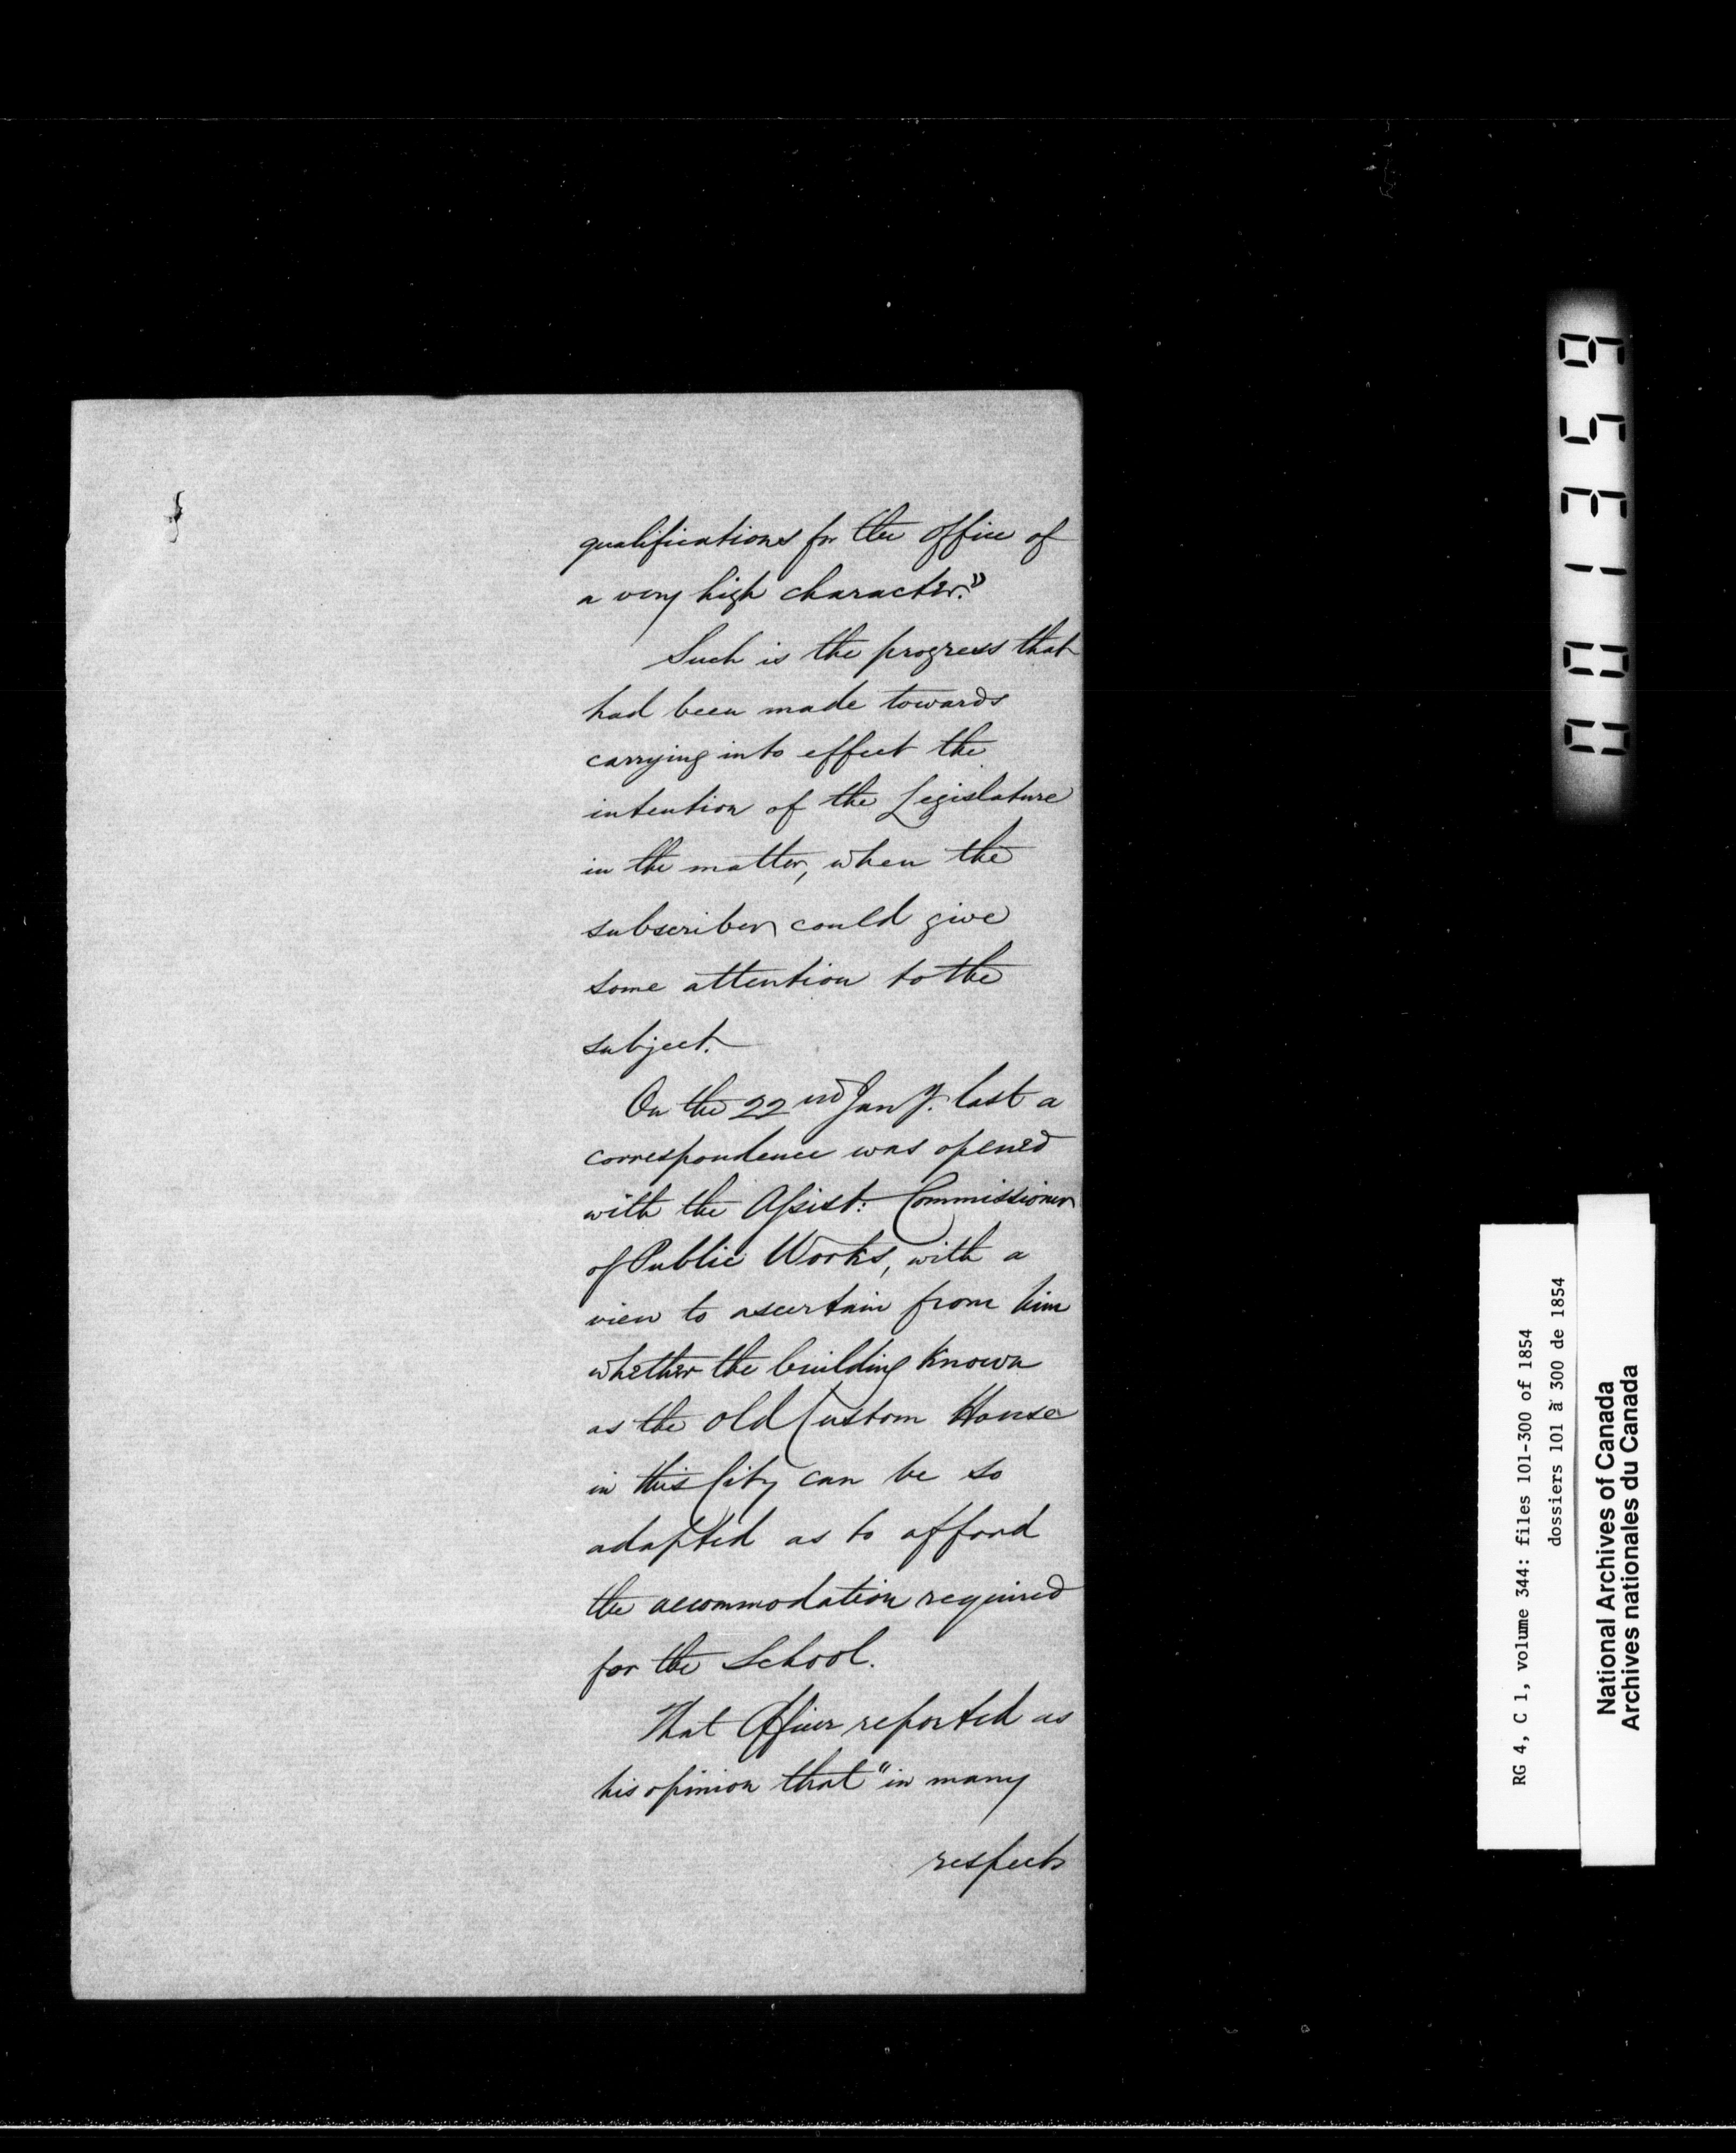 qualifications for the Office of
a very high character."
Such is the progress that
had been made towards
carrying into effect the
intention of the Legislature
in the matter, when the
subscriber could give
some attention to the
subject.
On the 22nd Jany. last a
correspondence was opened
with the Assist: Commissioner
of Public Works, with a
view to ascertain from him
whether the building known
as the Old Custom House
in this City can be so
adapted as to afford
the accommodation required
for the School.
That Officer reported as
his opinion that "in many
respects
RG 4, C 1, volume 344: files 101-300 of 1854
dossiers 101 à 300 de 1854
National Archives of Canada
Archives nationales du Canada